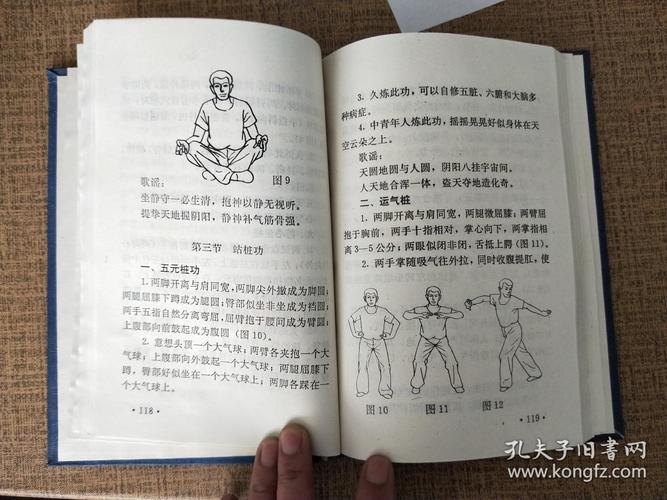 图9
歌谣：
坐静守一必生清，抱神以静无视听。
提挚天地握阴阳，静神补气筋骨强。
第三节 站桩功
一、五元桩功
1.两脚开离与肩同宽，两脚尖外撇成为脚圆；
两腿屈膝下蹲成为腿圆；臀部似坐非坐成为裆圆；
两手五指自然分离弯屈，屈臂抱于腰间成为臂圆；
上腹部向前鼓起成为腹圆（图10）。
2.意想头顶一个大气球；两臂各夹抱一个大
气球；上腹部向外鼓起一个大气球；两腿屈膝下
蹲，臀部好似坐在一个大气球上；两脚各踩在一
个大气球上。
·118·
3.久炼此功，可以自修五脏、六腑和大脑多
种病症。
4.中青年人炼此功，摇摇晃晃好似身体在天
空云朵之上。
歌谣：
天圆地圆与人圆，阴阳八挂宇宙间。
人天地合浑一体，盗天夺地造化奇。
二、运气桩
1.两脚开离与肩同宽，两腿微屈膝；两臂屈
抱于胸前，两手十指相对，掌心向下，两掌指相
离3—5公分；两眼似闭非闭，舌抵上腭（图11）。
2.两手掌随吸气往外拉，同时收腹提肛，使
图10
图11
图12
·119·
孔夫子旧书网
www.kongfz.com